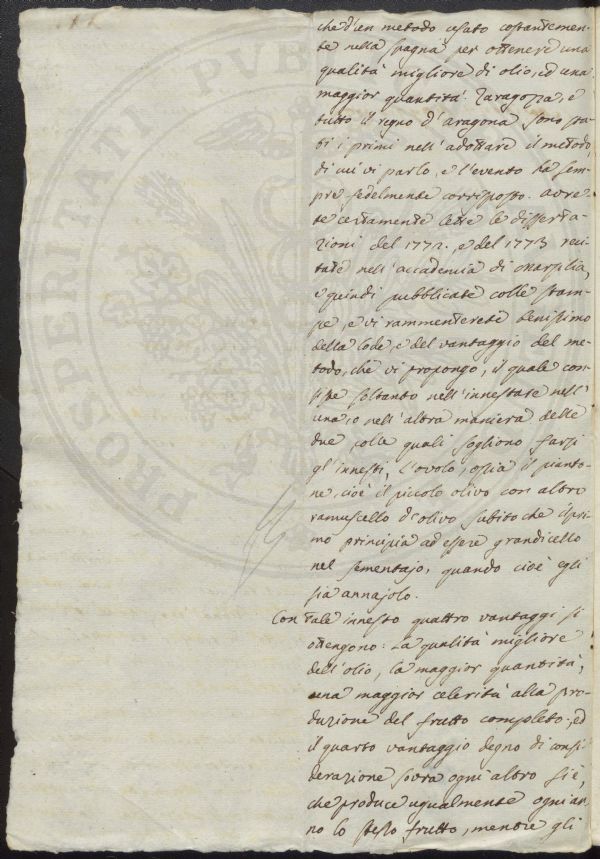 che d'un metodo usato costantemen-
te nella Spagna per ottenere una
qualità migliore di olio, ed una
maggior quantità. Zaragozza, e
tutto il regno d'aragona sono sta-
ti i primi nell'adottare il metodo,
di cui vi parlo, e l'evento ha sem-
pre fedelmente corrisposto. avre-
te certamente lette le disserta-
zioni del 1772. e del 1773 reci-
tate nell'accademia di Marsilia,
e quindi pubblicate colle stam-
pe, e vi rammenterete benissimo
della lode, e del vantaggio del me-
todo, che vi propongo, il quale con-
siste soltanto nell'innestare nell'
una, o nell'altra maniera delle
due, colle quali sogliono farsi
gl'innesti, l'ovolo, ossia il pianto-
ne, cioè il piccolo olivo con altro
ramuscello d'olivo subito che il pri-
mo principia ad essere grandicello
nel sementajo, quando cioè egli
sia annajolo.
Con tale innesto quattro vantaggi si
ottengono: La qualità migliore
dell'olio, la maggior quantità,
una maggior celerità alla pro-
duzione del frutto completo, ed
il quarto vantaggio degno di consi-
derazione sovra ogni altro si è,
che produce ugualmente ogni an-
no lo stesso frutto, mentre gli
PROSPERITATI PVB